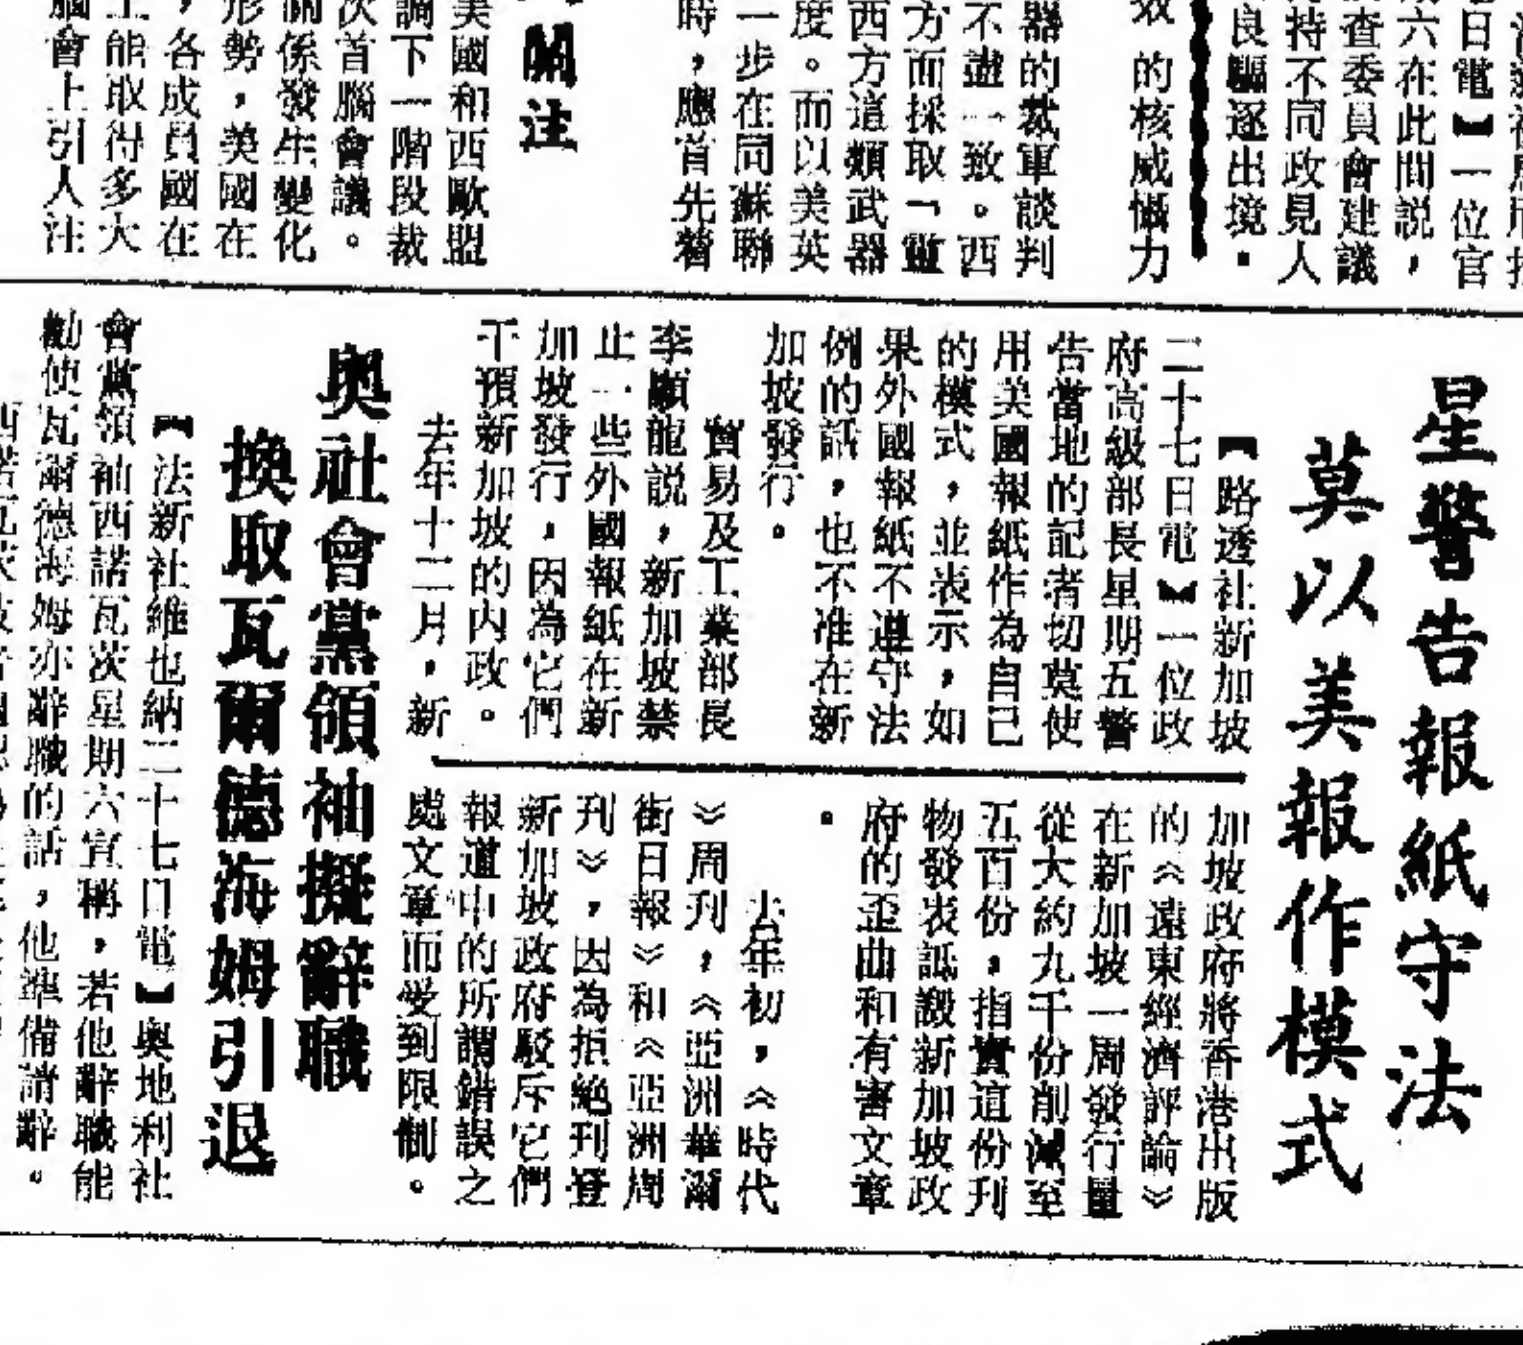 日電】一位官
六在此間説，
查委員會建議
持不同政見人
良驅逐出境．
的核威懾力
器的裁軍談判
不盡一致。西
方而採取「靈
西方這類武器
度。而以美英
一步在同蘇聯
時，應首先着
關注
美國和西歐盟
調下一階段裁
次首腦會議。
關係發生變化
形勢，美國在
，各成員國在
上能取得多大
腦會上引人注
星警告報紙守法
莫以美報作模式
【路透社新加坡
二十七日電】一位政
府高級部長星期五警
告當地的記者切莫使
用美國報紙作為自己
的模式，並表示，如
果外國報紙不遵守法
例的話，也不准在新
加坡發行。
貿易及工業部長
李顯龍説，新加坡禁
止一些外國報紙在新
加坡發行，因為它們
干預新加坡的內政。
去年十二月，新
加坡政府將香港出版
的《遠東經濟評論》
在新加坡一周發行量
從大約九千份削減至
五百份，指責這份刊
物發表詆譭新加坡政
府的歪曲和有害文章
。
去年初，《時代
》周刊，《亞洲華爾
街日報》和《亞洲周
刊》，因為拒絕刊登
新加坡政府駁斥它們
報道中的所謂錯誤之
處文章而受到限制。
奧社會黨領袖擬辭職
換取瓦爾德海姆引退
【法新社維也納二十七日電】奧地利社
會黨領袖西諾瓦茨星期六宣稱，若他辭職能
勸使瓦爾德海姆亦辭職的話，他準備請辭。